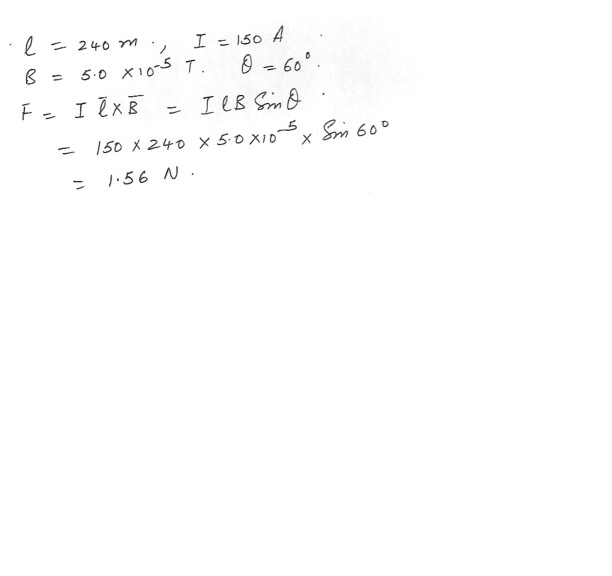 l = 240 m ., I = 150 A
B = 5.0 × 10⁻⁵ T. θ = 60°.
F̄ = I l̄ × B̄ = I l B Sin θ .
= 150 × 240 × 5.0 × 10⁻⁵ × Sin 60°
= 1.56 N .